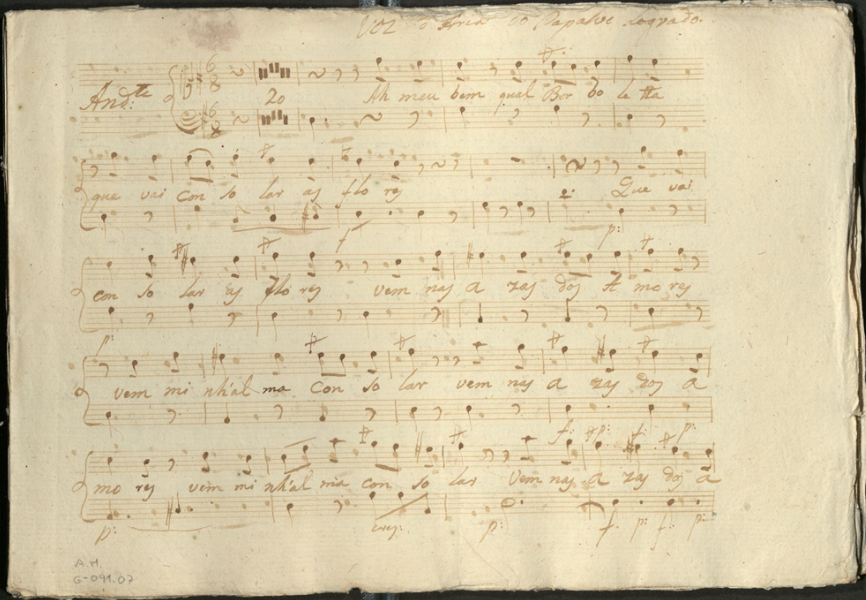 Voz d'Aria do Papalvo Logrado.
And:te 6/8 20 Ah meu bem qual Bor bo le tta
6/8
que vai con so lar as flo res Que vai
f p:
con so lar as flo res vem nas a zas dos A mo res
p:
vem mi nh'al ma con so lar vem nas a zas dos a
f: p: f: p:
mo res vem mi nh'al ma con so lar vem nas a zas dos a
p: p: f. p: f: p:
A.M.
G-091.07